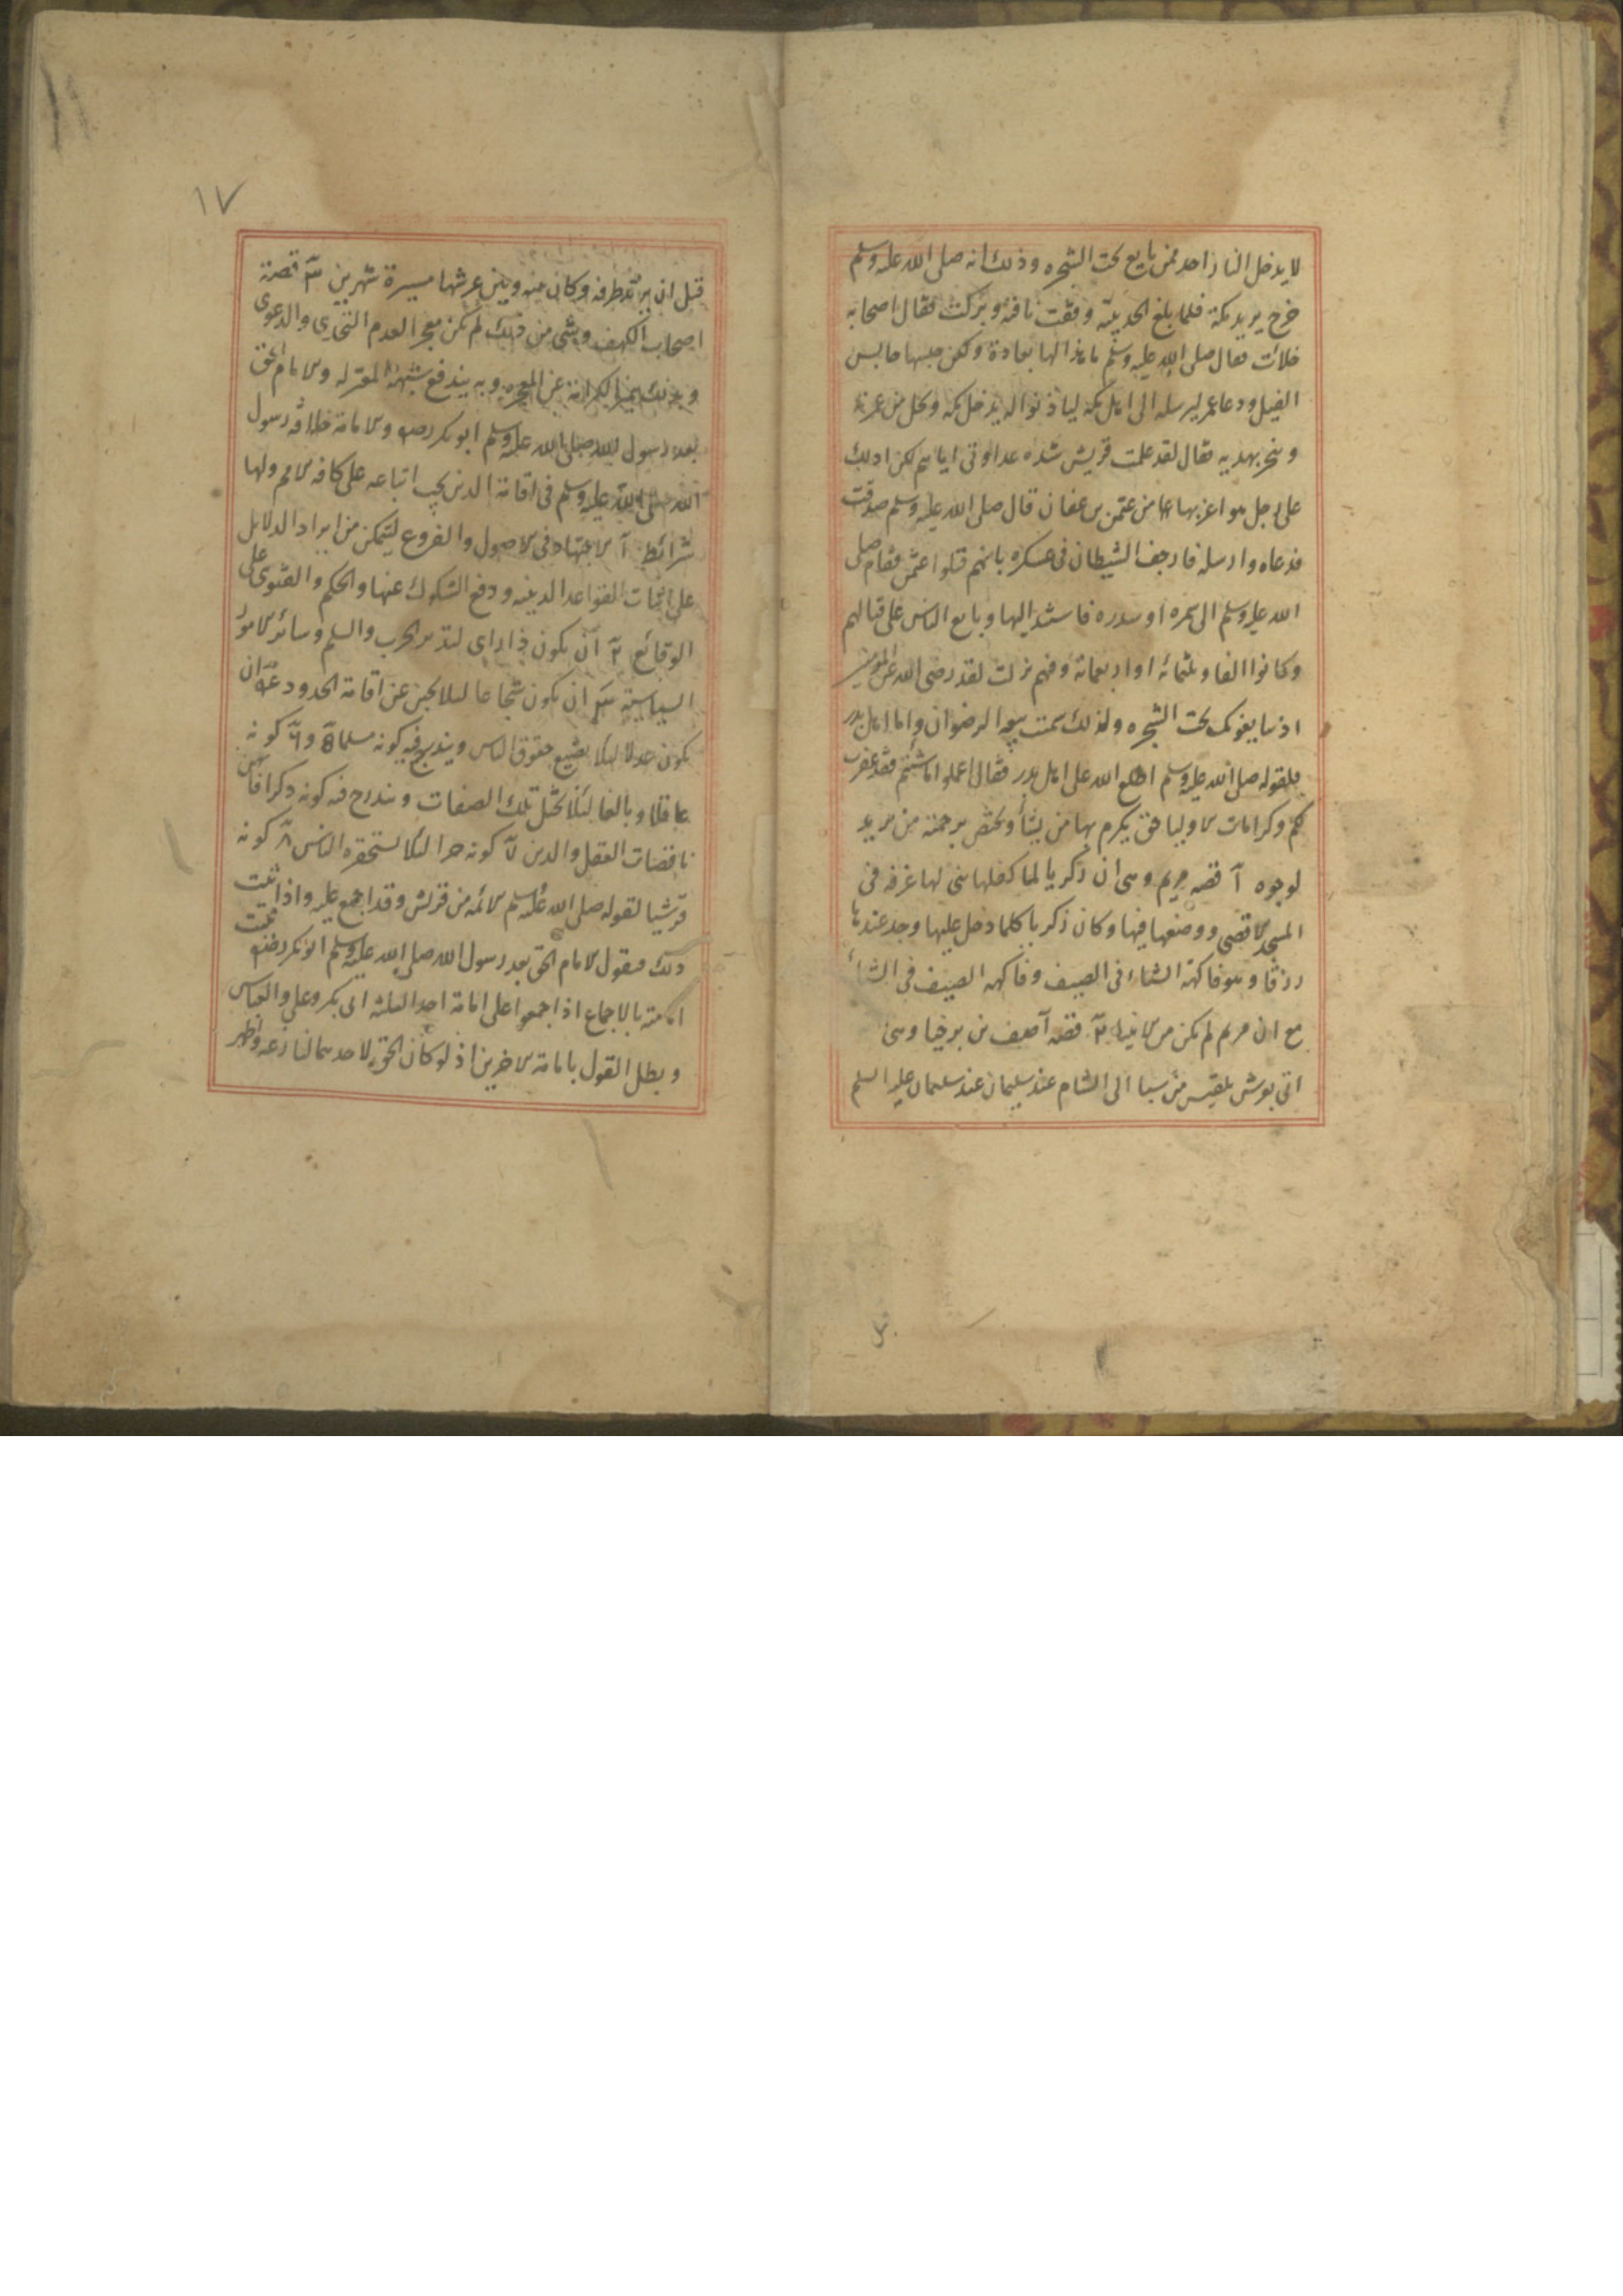 لا يدخل النار احد ممن بايع تحت الشجره وذلك انه صلى الله عليه وسلم
خرج يريد مكة فلما بلغ الحديبية وقفت ناقته وبركت فقال اصحابه
خلائت فقال صلى الله عليه وسلم ما هذا لها بعادة ولكن حبسها حابس
الفيل ودعا عمر ليرسله الى اهل مكه لياذنوا له يدخل مكه ويحل من عمرته
وينحر بهديه فقال لقد علمت قريش شده عداوتى اياهم لكن ادلك
على رجل هو اعز بها منى عثمن بن عفان قال صلى الله عليه وسلم صدقت
فدعاه وارسله فارجف الشيطان فى عسكره بانهم قتلوا عثمن فقام صلى
الله عليه وسلم الى سمره او سدره فاستند اليها وبايع الناس على قتالهم
وكانوا الفا وثلثمائه او اربعمائة وفيهم نزلت لقد رضى الله عن المؤمنين
اذ يبايعونك تحت الشجره ولذلك سمت بيعه الرضوان واما اهل بدر
فلقوله صلى الله عليه وسلم اطلع الله على اهل بدر فقال اعملوا ما شئتم فقد غفرت
لكم وكرامات الاوليا حق يكرم بها من يشأ ويختص برحمته من يريد
لوجوه ١ قصه مريم وهى ان زكريا لما كفلها بنى لها غرفه فى
المسجد الاقصى ووضعها فيها وكان زكريا كلما دخل عليها وجد عندها
رزقا وهو فاكهة الشتاء فى الصيف وفاكهه الصيف فى الشتأ
مع ان مريم لم يكن من الانبيا ٢ قصه آصف بن برخيا وهى
اتى بعرش بلقيس من سبا الى الشام عند سليمان عند سليمان عليه السلم
١٧
قبل ان يرتد طرفه وكان بينه وبين عرشها مسيرة شهرين ٣ قصة
اصحاب الكهف وشى من ذلك لم يكن معجزا لعدم التحدى والدعوى
وبذلك يتميز الكرامة عن المعجزه وبه يندفع شبهة المعتزله والامام الحق
بعد رسول الله صلى الله عليه وسلم ابو بكر رضه والامامة خلافه رسول
الله صلى الله عليه وسلم فى اقامة الدين يجب اتباعه على كافه الامم ولها
شرائط ١ الاجتهاد فى الاصول والفروع ليتمكن من ايراد الدلايل
على اثبات القواعد الدينيه ودفع الشكوك عنها والحكم والفتوى على
الوقائع ٢ ان يكون ذا راى لتدبير الحرب والسلم وسائر الامور
السياسية ٣ ان يكون شجاعا لئلا يجبن عن اقامة الحدود ٤ ان
يكون عدلا لئلا يضيع حقوق الناس ويندرج فيه كونه مسلما ٥ و ٦ كونه
عاقلا وبالغا لئلا يختل تلك الصفات ويندرج فيه كونه ذكرا فانهن
ناقصات العقل والدين ٧ كونه حرا لئلا يستحقره الناس ٨ كونه
قرشيا لقوله صلى الله عليه وسلم الائمه من قريش وقد اجمع عليه واذا ثبت
ذلك فنقول الامام الحق بعد رسول الله صلى الله عليه وسلم ابو بكر رضه ثبت
امامته بالاجماع اذ اجمعوا على امامة احد الثلثه ابى بكر وعلى والعباس
وبطل القول بامامة الاخرين اذ لو كان الحق لاحدهما لنازعه واظهر